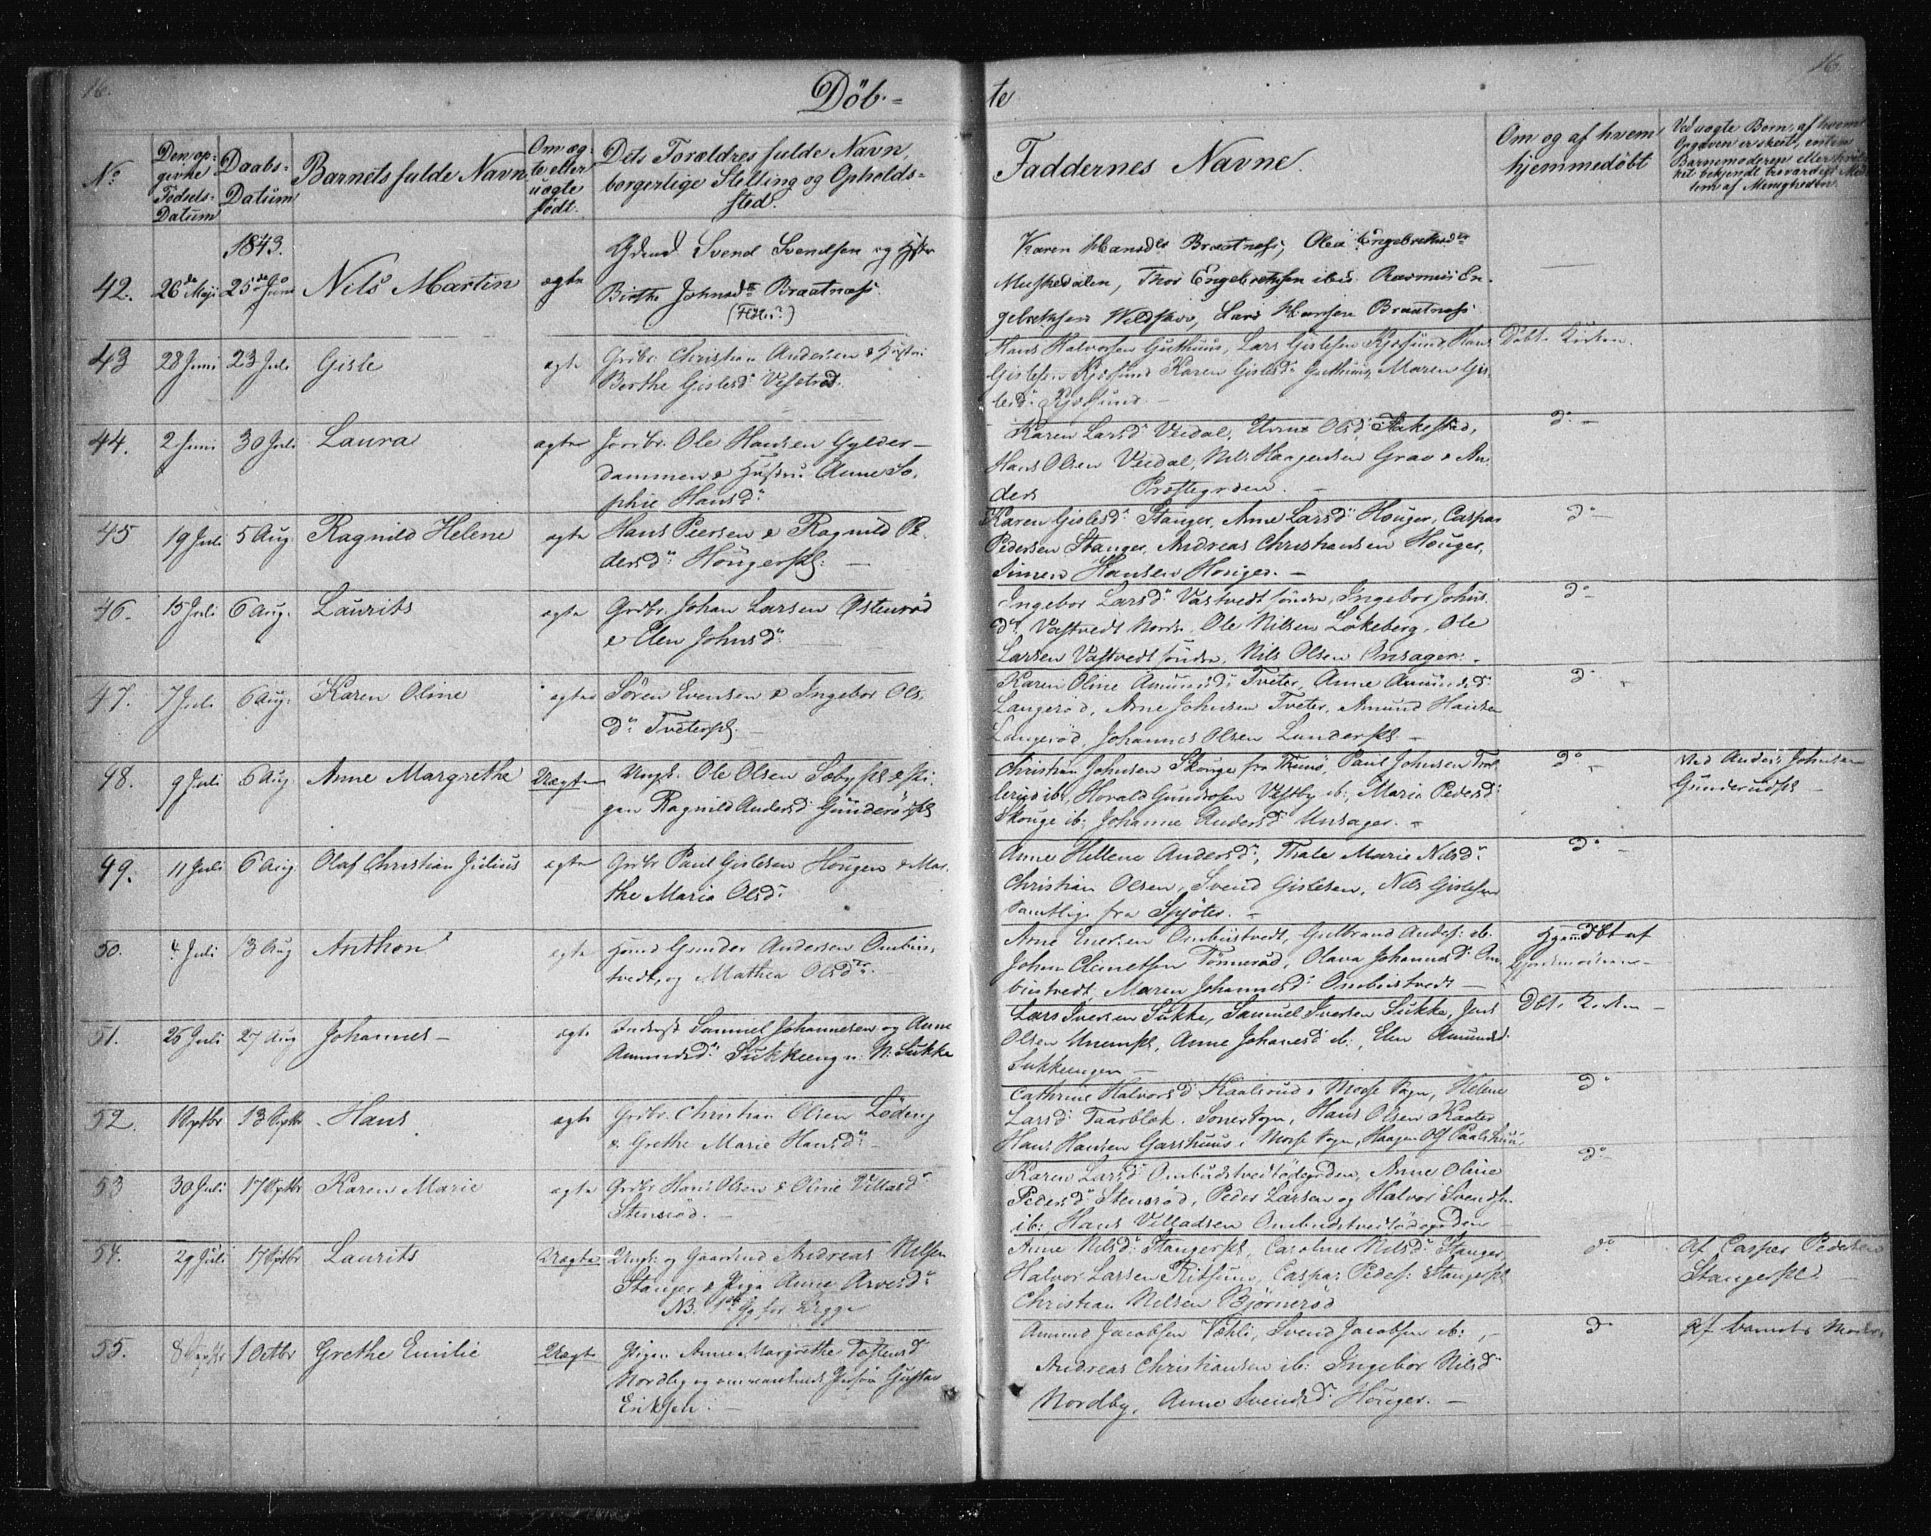 16.
Döb-
te
16.
No
Den op-
givne
Födsels-
Datum
Daabs-
Datum
Barnets fulde Navn
Om æg-
te eller
uægte
født.
Dets Forældres fulde Navn,
borgerlige Stilling og Opholds-
sted.
Faddernes Navne.
Om og af hvem
hjemmedøbt
Ved uægte Børn, af hvem
Opgaven er skeet, enten
Barnemoderen eller
bekjendt troværdigt Med-
lem af Menigheden.
1843.
42. 26de Maji 25de Juni Nils Martin ægte
Svend Svendsen og Hustru
Birthe Johnsdr Braatnæs.
Karen Hansdr Braatnæs, Olea Engebretsdr
Muskedalen, Thor Engebretsen ibid. Rasmus En-
gebretsen Wildskov, Lars Hansen Braatnæs
43 28 Juni 23 Juli Gisle ægte
Grdbr. Christian Andersen & Hustru
Berthe Gislesd. Vestrød.
Hans Halvorsen Guthuus, Lars Gislesen Kjøsund, Hans
Gislesen Kjøsund Karen Gislesd. Guthuus, Maren Gis-
lesd. Kjøsund. —
Døbt i Kirken.
44. 2 Juni 30 Juli Laura ægte
Jordbr. Ole Hansen Gylder-
dammen & Hustru Anne So-
phie Hansd.
Karen Larsd. Veidal, Olsd. Stakestad,
Hans Olsen Veidal, Nils Haagensen Grav & An-
ders Præstegrden. —
do —
45 19 Juli 5 Aug Ragnild Helene ægte
Hans Piersen & Ragnild Pe-
dersd. Hougerpl. —
Karen Gislesd. Stanger, Anne Larsd. Houger, Caspar
Pedersen Stanger, Andreas Christiansen Houger,
Simen Hansen Houger. —
do —
46. 15 Juli 6 Aug. Laurits ægte
Grdbr. Johan Larsen Østenrød
& Elen Johnsd.
Ingebor Larsd. Vastvedt søndre, Ingebor Johns-
dr Vastvedt Nordr. Ole Nilsen Løkeberg, Ole
Larsen Vastvedt søndre, Nils Olsen Onsager.
do
47. 7 Juli 6 Aug. Karen Oline ægte
Søren Evensen & Ingebor Ols-
dr Tveterpl. —
Karen Oline Amundsd. Tveter, Anne Amundsd.
Langerød, Arne Johnsen Tveter, Amund Hansen
Langerød, Johannes Olsen Lunderpl. —
do
48. 9 Juli 6 Aug Anne Margrethe Uægte
Ungk. Ole Olsen Sobypl. & Pi-
gen Ragnild Andersd. Gunderødpl
Christian Johnsen Skouge fra Thunø, Paul Johnsen
ib., Horald Gundrosen Vestby ib., Maria Pedersd.
Skouge ib. Johanne Andersd. Unsager. —
do
Ved Anders Johnsen
Gunderudpl —
49. 11 Juli 6 Aug Olaf Christian Julius ægte
Grdbr Paul Gislesen Hougen & Mar-
the Maria Olsd.
Anne Hellene Andersd., Thale Marie Nilsd.
Christian Olsen, Svend Gislesen, Nils Gislesen
samtlige fra Spjøter. —
do
50. 4 Juli 13 Aug Anthon ægte
Gunder Andersen Ombus-
tvedt, og Mathea Olsdtr.
Arne Enersen Ombustvedt, Gulbrand Anders: ib.
Johan Clemetsen Tønnerød, Olava Johannesd. Om-
bustvedt, Maren Johannesd. Ombustvedt —
Hjemdøbt af
Gjordmoderen —
51. 26 Juli 27 Aug Johannes — ægte
Inderst Samuel Johannesen og Anne
Amundsd. Sukkeeng u. N: Sukke
Lars Iversen Sukke, Samuel Iversen Sukke, Jens
Olsen Unempl, Anne Johanesd. ib:, Elen Amundsd.
Sukkeengen —
Dbt. i Kirken —
52. 1 Septbr 13 Septbr Hans ægte
Grdbr. Christian Olsen Løding
& Grethe Marie Hansd.
Cathrine Halvorsd. Kaalsrud i Mosse Sogn, Helene
Larsd. Taarblok. Soner Sogn, Hans Olsen Kaater
Hans Hansen Garshuus i Mosse Sogn, Haagen
do
53 30 Juli 17 Septbr Karen Marie ægte
Grdbr Hans Olsen & Oline Villasd.
Stensrød. —
Karen Larsd. Ombudstvedtødegrden, Anne Oline
Pedersd. Stensrød, Peder Larsen og Halvor Svendsen
ib: Hans Villadsen Ombudstvedtødegrden —
do
54. 29 Juli 17 Septbr Laurits Uægte
Ungk. og Gaardmd Andreas Nilsen
Stanger & Pige Anne Arvesd.
NB. 1ste Gg for begge
Anne Nilsd. Stangerpl, Caroline Nilsd. Stanger,
Halvor Larsen Kitsund, Caspar Peders: Stangerpl
Christian Nilsen Bjørnerød
do
af Casper Pedersen
Stangerpl. —
55. 8 Septbr 1 Octbr Grethe Emilie Uægte
Pigen Anne Margrethe Toftensd.
Nordby og omvankende Person Gustav
Eriksen. —
Amund Jacobsen Væhli, Svend Jacobsen ib:,
Andreas Christiansen ib: Ingebor Nilsd.
Nordby, Anne Svendsd. Houger. —
do
Af barnets Moder